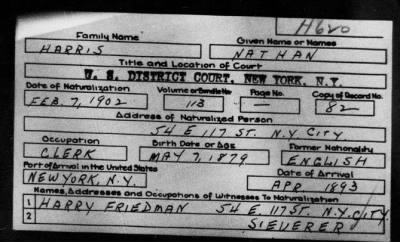 H620
Family Name Given Name or Names
HARRIS NATHAN
Title and Location of Court
U. S. DISTRICT COURT, NEW YORK, N.Y.
Date of Naturalization Volume or Bundle No Page No. Copy of Record No.
FEB. 7, 1902 113 — 82
Address of Naturalized Person
54 E 117 ST. N.Y. CITY
Occupation Birth Date or Age Former Nationality
CLERK MAY 7, 1879 ENGLISH
Port of Arrival in the United States Date of Arrival
NEW YORK, N.Y. APR. 1893
Names, Addresses and Occupations of Witnesses To Naturalization
1 HARRY FRIEDMAN 54 E. 117 ST. N.Y. CITY
2 SIEVERER